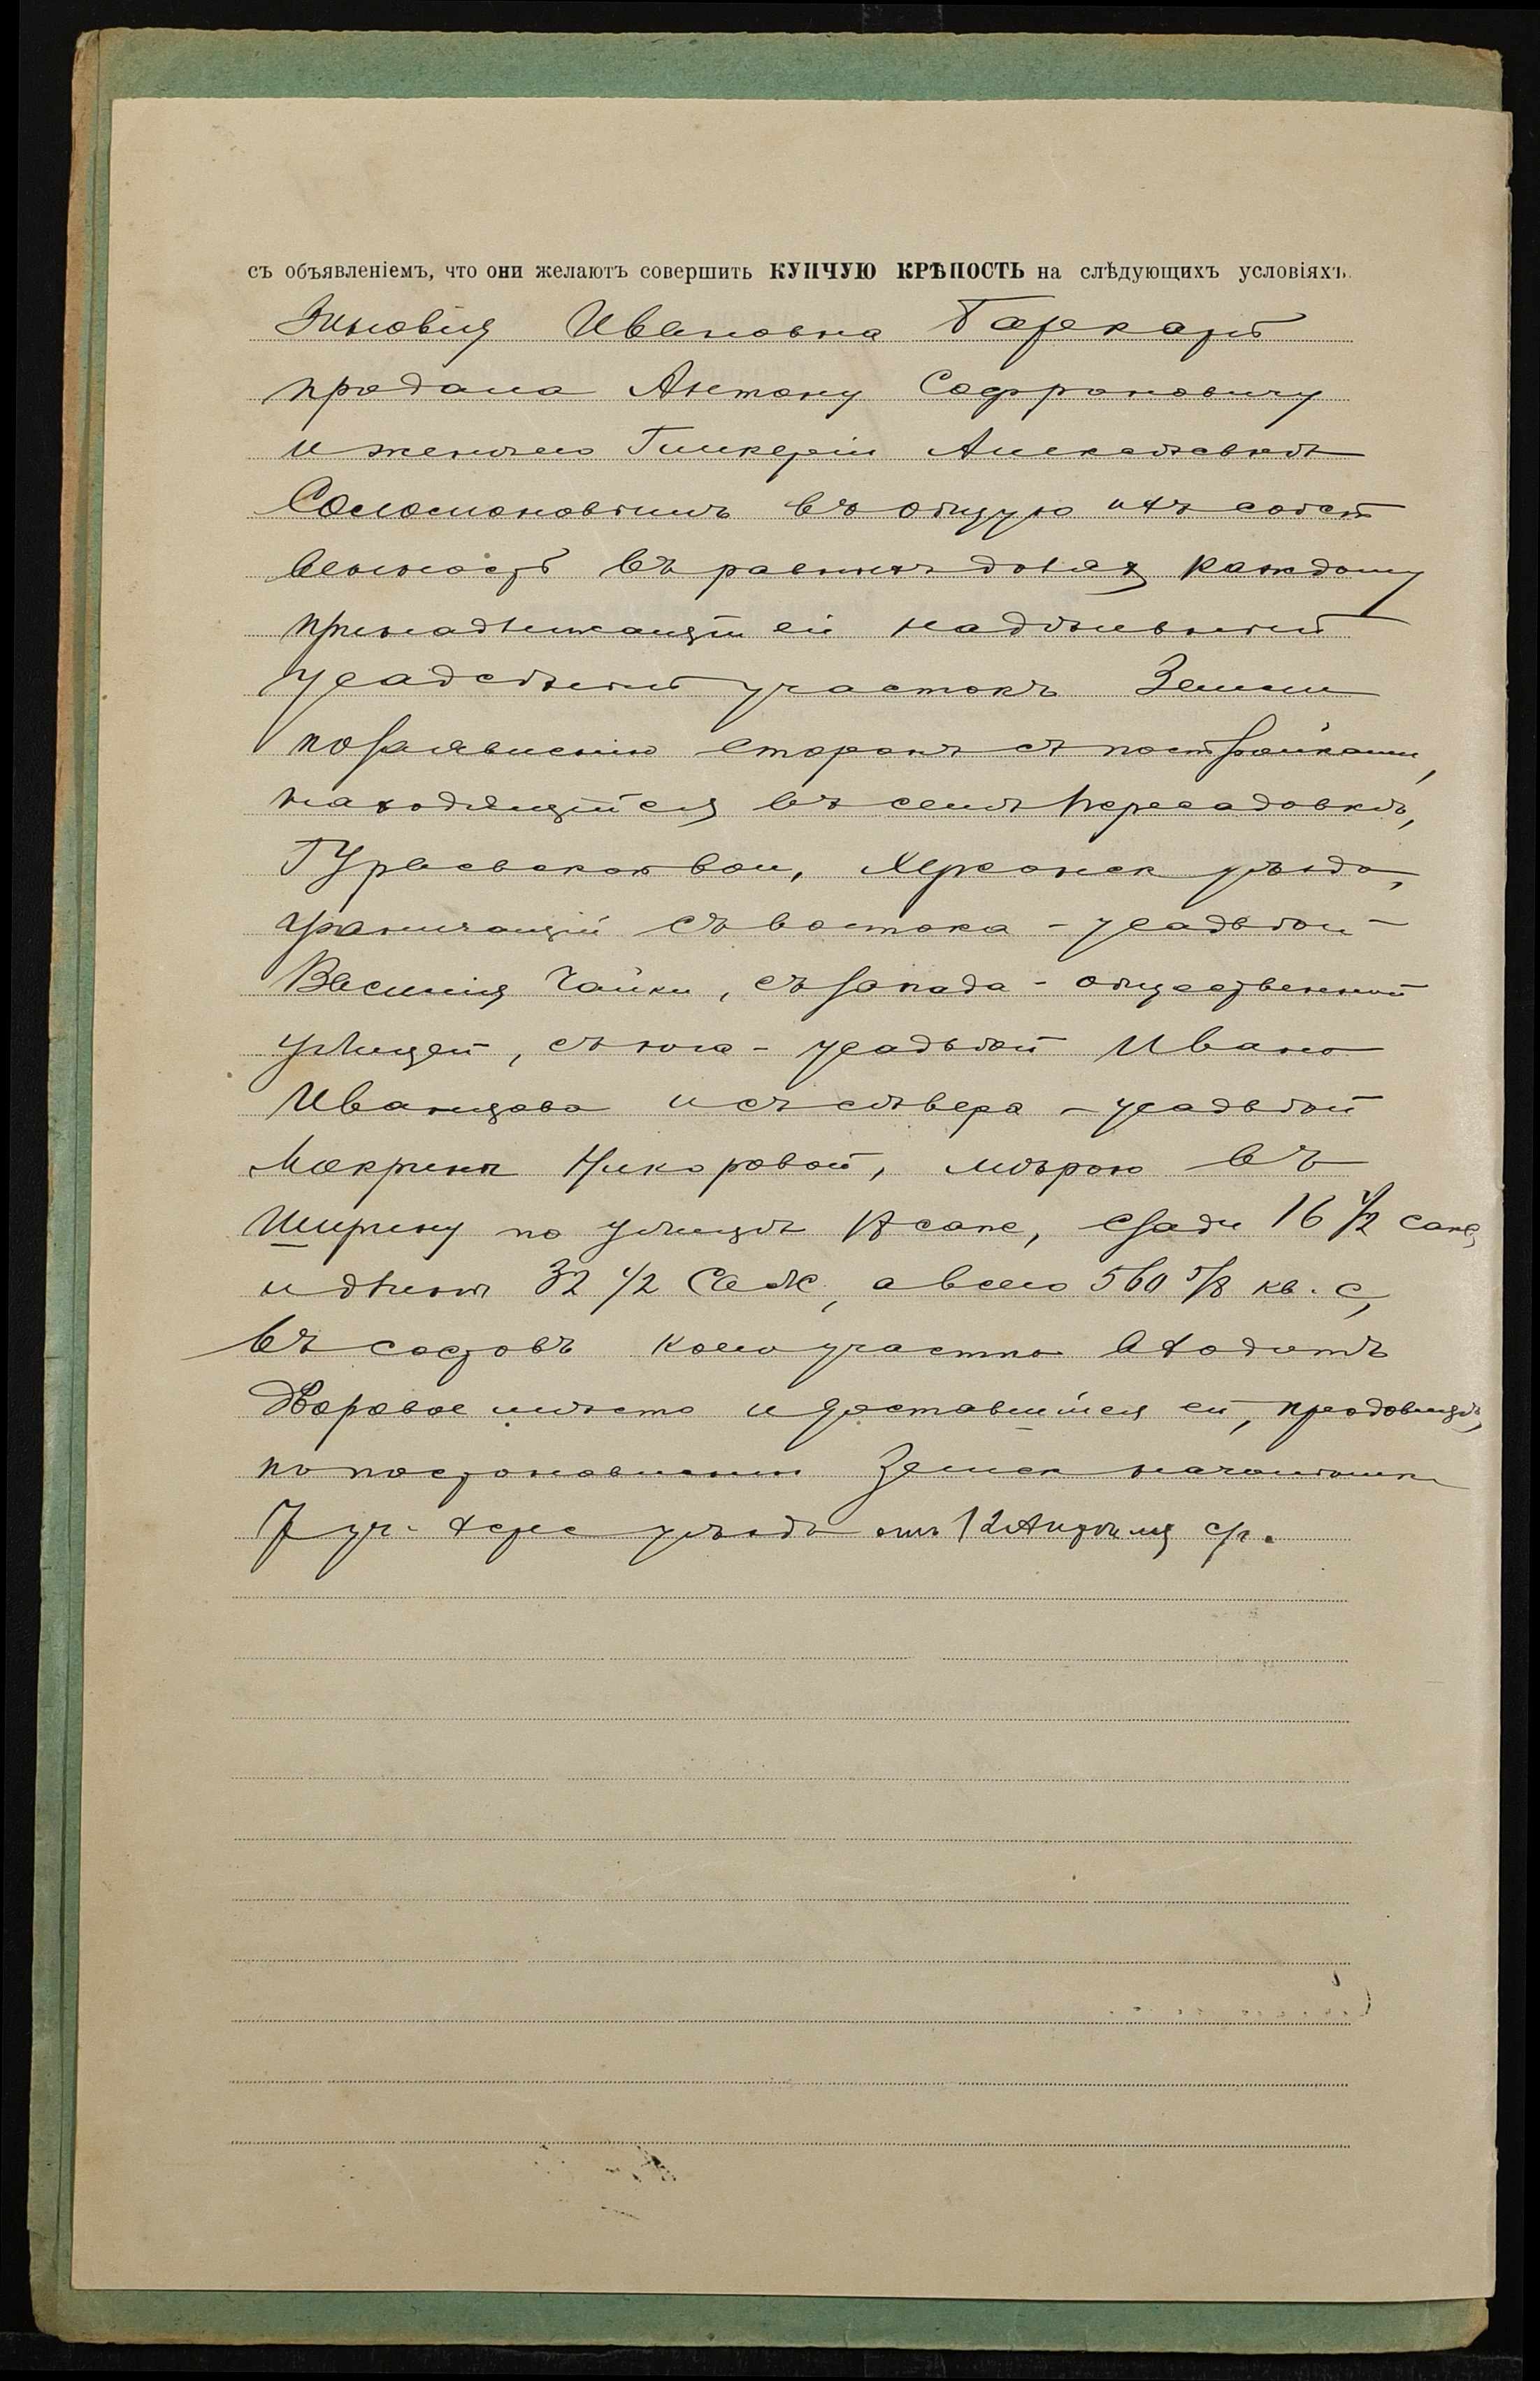 съ объявленіемъ, что они желаютъ совершить КУПЧУЮ КРѢПОСТЬ на слѣдующихъ условіяхъ.
Зиновія Ивановна
продала Антону Софроновичу
и женѣ его Гликеріи Алексѣевнѣ
Соломоновымъ въ общую ихъ собст
венность въ равныхъ доляхъ каждому
принадлежащій ей надѣльный
усадебный участокъ земли
по заявленію сторонъ съ постройками,
находящійся въ селѣ Пересадовкѣ,
Гурьевской вол, Херсонск уѣзда,
граничащій съ востока - усадьбой
Василія Чайки, съ запада - общественной
улицей, съ юга - усадьбой Ивана
Иванцова и съ сѣвера - усадьбой
Макрины, мѣрою въ
ширину по улицѣ 18 саж, сзади 16 1/2 саж,
и длины 32 1/2 саж, а всего 560 5/8 кв. с,
въ составъ коего участка входитъ
дворовое мѣсто и доставшійся ей, продавицѣ,
по постановленію Земск начальника
7 уч. Херс уѣзда отъ 12 Апрѣля с/г.